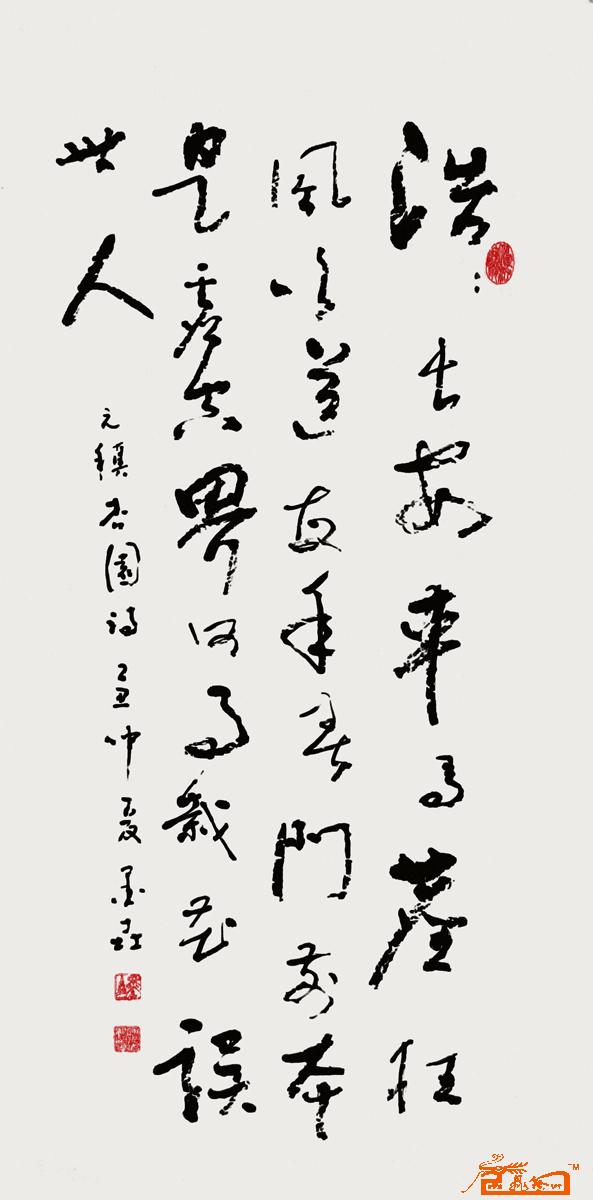 浩々長安車馬塵狂
風吹送每年春門前本
是虛空界何事栽花誤
世人
元稹杏園詩乙丑仲夏